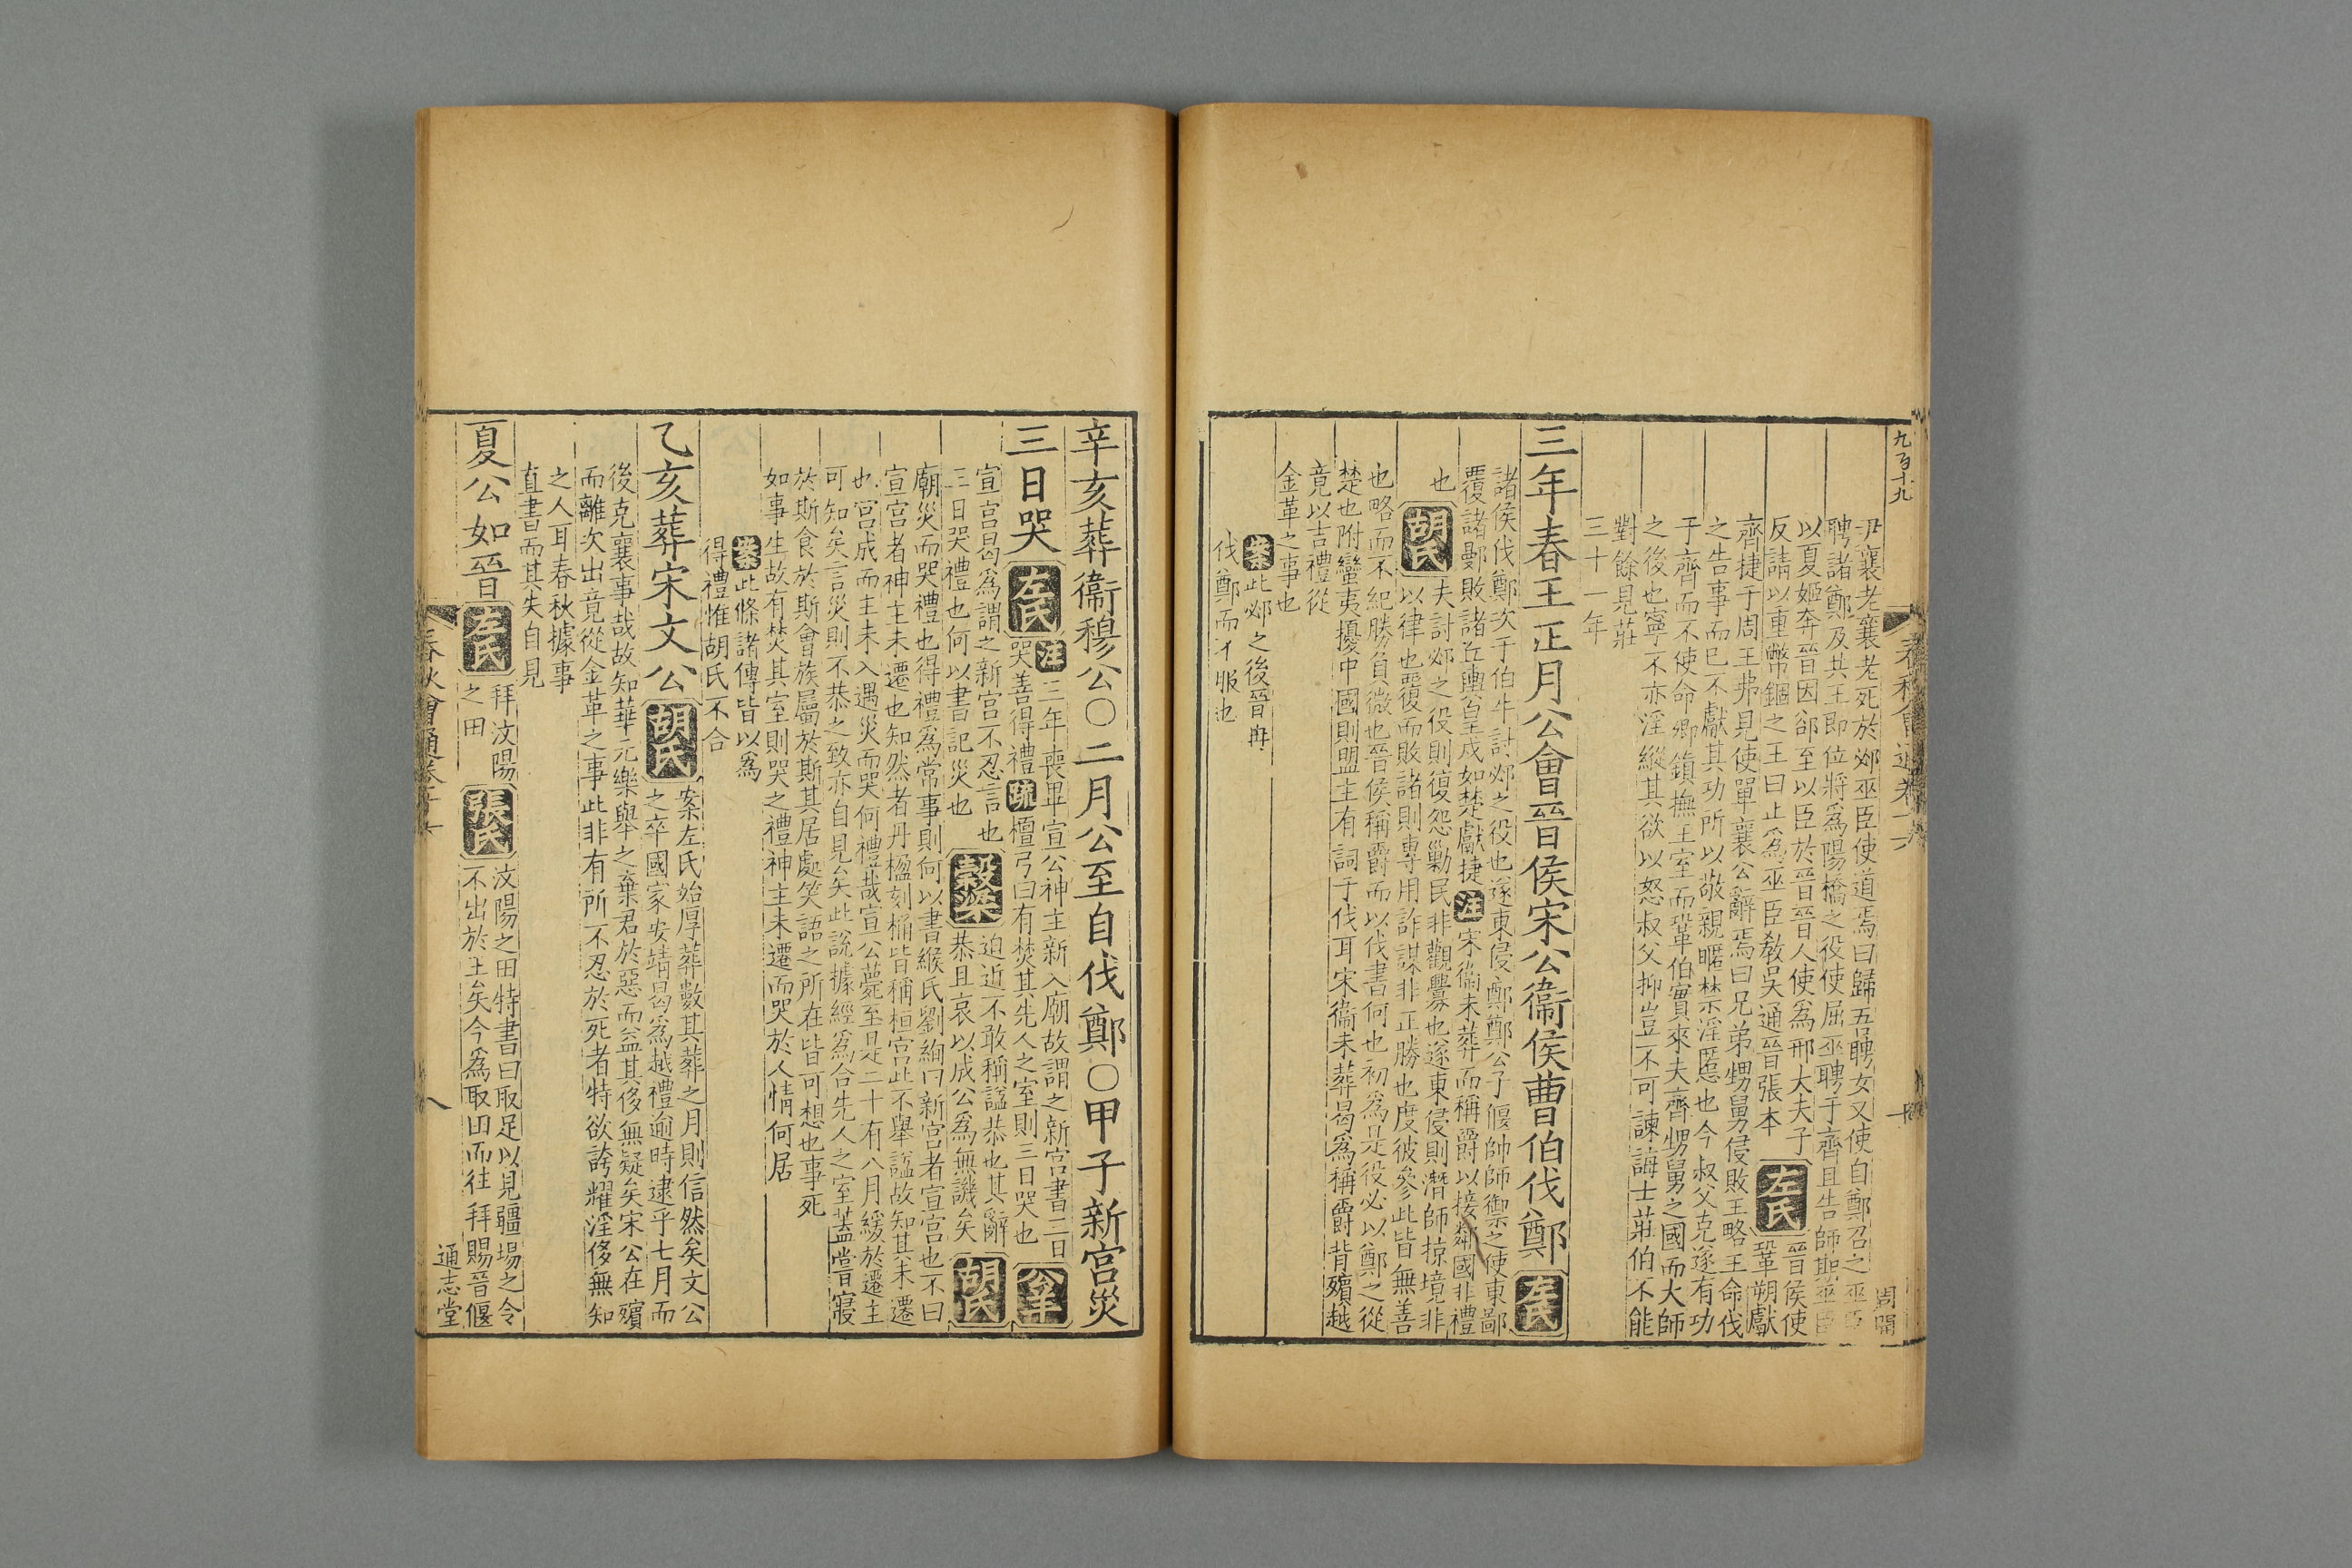 九百十九
尹襄老襄老死於邲巫臣使道焉曰歸吾聘女又使自鄭召之巫臣
聘諸鄭及其王即位將爲陽橋之役使屈巫聘于齊且告師期巫臣
以夏姬奔晉因郤至以臣於晉晉人使爲邢大夫子
反請以重幣錮之王曰止爲巫臣敎吳通晉張本
左氏
晉侯使
鞏朔獻
齊捷于周王弗見使單襄公辭焉曰兄弟甥舅侵敗王略王命伐
之告事而已不獻其功所以敬親暱禁淫慝也今叔父克遂有功
于齊而不使命卿鎮撫王室而鞏伯實來夫齊甥舅之國而大師
之後也寧不亦淫縱其欲以怒叔父抑豈不可諫誨士莊伯不能
對餘見莊
三十一年
三年春王正月公會晉侯宋公衞侯曹伯伐鄭
左氏
諸侯伐鄭次于伯牛討邲之役也遂東侵鄭鄭公子偃帥師禦之使東鄙
覆諸鄤敗諸丘輿皇戌如楚獻捷
注
宋衞未葬而稱爵以接鄰國非禮
也
胡氏
夫討邲之役則復怨勦民非觀釁也遂東侵則潛師掠境非
以律也覆而敗諸則專用詐謀非正勝也度彼參此皆無善
也略而不紀勝負微也晉侯稱爵而以伐書何也初爲是役必以鄭之從
楚也附蠻夷擾中國則盟主有詞于伐耳宋衞未葬曷爲稱爵背殯越
竟以吉禮從
金革之事也
案
此邲之後晉冉
伐鄭而不服也
辛亥葬衞穆公〇二月公至自伐鄭〇甲子新宮災
三日哭
左氏
注
三年喪畢宣公神主新入廟故謂之新宮書三日
哭善得禮
疏
檀弓曰有焚其先人之室則三日哭也
公羊
宣宮曷爲謂之新宮不忍言也
三日哭禮也何以書記災也
穀梁
迫近不敢稱諡恭也其辭
恭且哀以成公爲無譏矣
胡氏
廟災而哭禮也得禮爲常事則何以書緱氏劉絢曰新宮者宣宮也不曰
宣宮者神主未遷也知然者丹楹刻桷皆稱桓宮此不舉諡故知其未遷
也宮成而主未入遇災而哭何禮哉宣公薨至是二十有八月緩於遷主
可知矣言災則不恭之致亦自見矣此說據經爲合先人之室蓋嘗寢
於斯食於斯會族屬於斯其居處笑語之所在皆可想也事死
如事生故有焚其室則哭之禮神主未遷而哭於人情何居
案
此條諸傳皆以爲
得禮惟胡氏不合
乙亥葬宋文公
胡氏
案左氏始厚葬數其葬之月則信然矣文公
之卒國家安靖曷爲越禮逾時逮乎七月而
後克襄事哉故知華元樂舉之棄君於惡而益其侈無疑矣宋公在殯
而離次出竟從金革之事此非有所不忍於死者特欲誇耀淫侈無知
之人耳春秋據事
直書而其失自見
夏公如晉
左氏
拜汶陽
之田
張氏
汶陽之田特書曰取足以見疆埸之令
不出於王矣今爲取田而往拜賜晉偃
八
通志堂